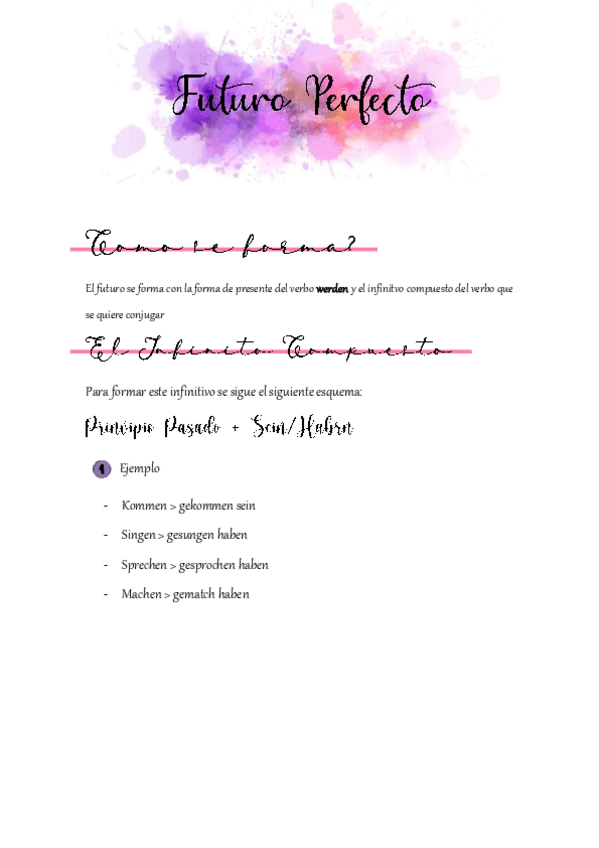 Futuro Perfecto
Como se forma?
El futuro se forma con la forma de presente del verbo werden y el infinitvo compuesto del verbo que
se quiere conjugar
El Infinito Compuesto
Para formar este infinitivo se sigue el siguiente esquema:
Principio Pasado + Sein/Habrn
1 Ejemplo
- Kommen > gekommen sein
- Singen > gesungen haben
- Sprechen > gesprochen haben
- Machen > gematch haben